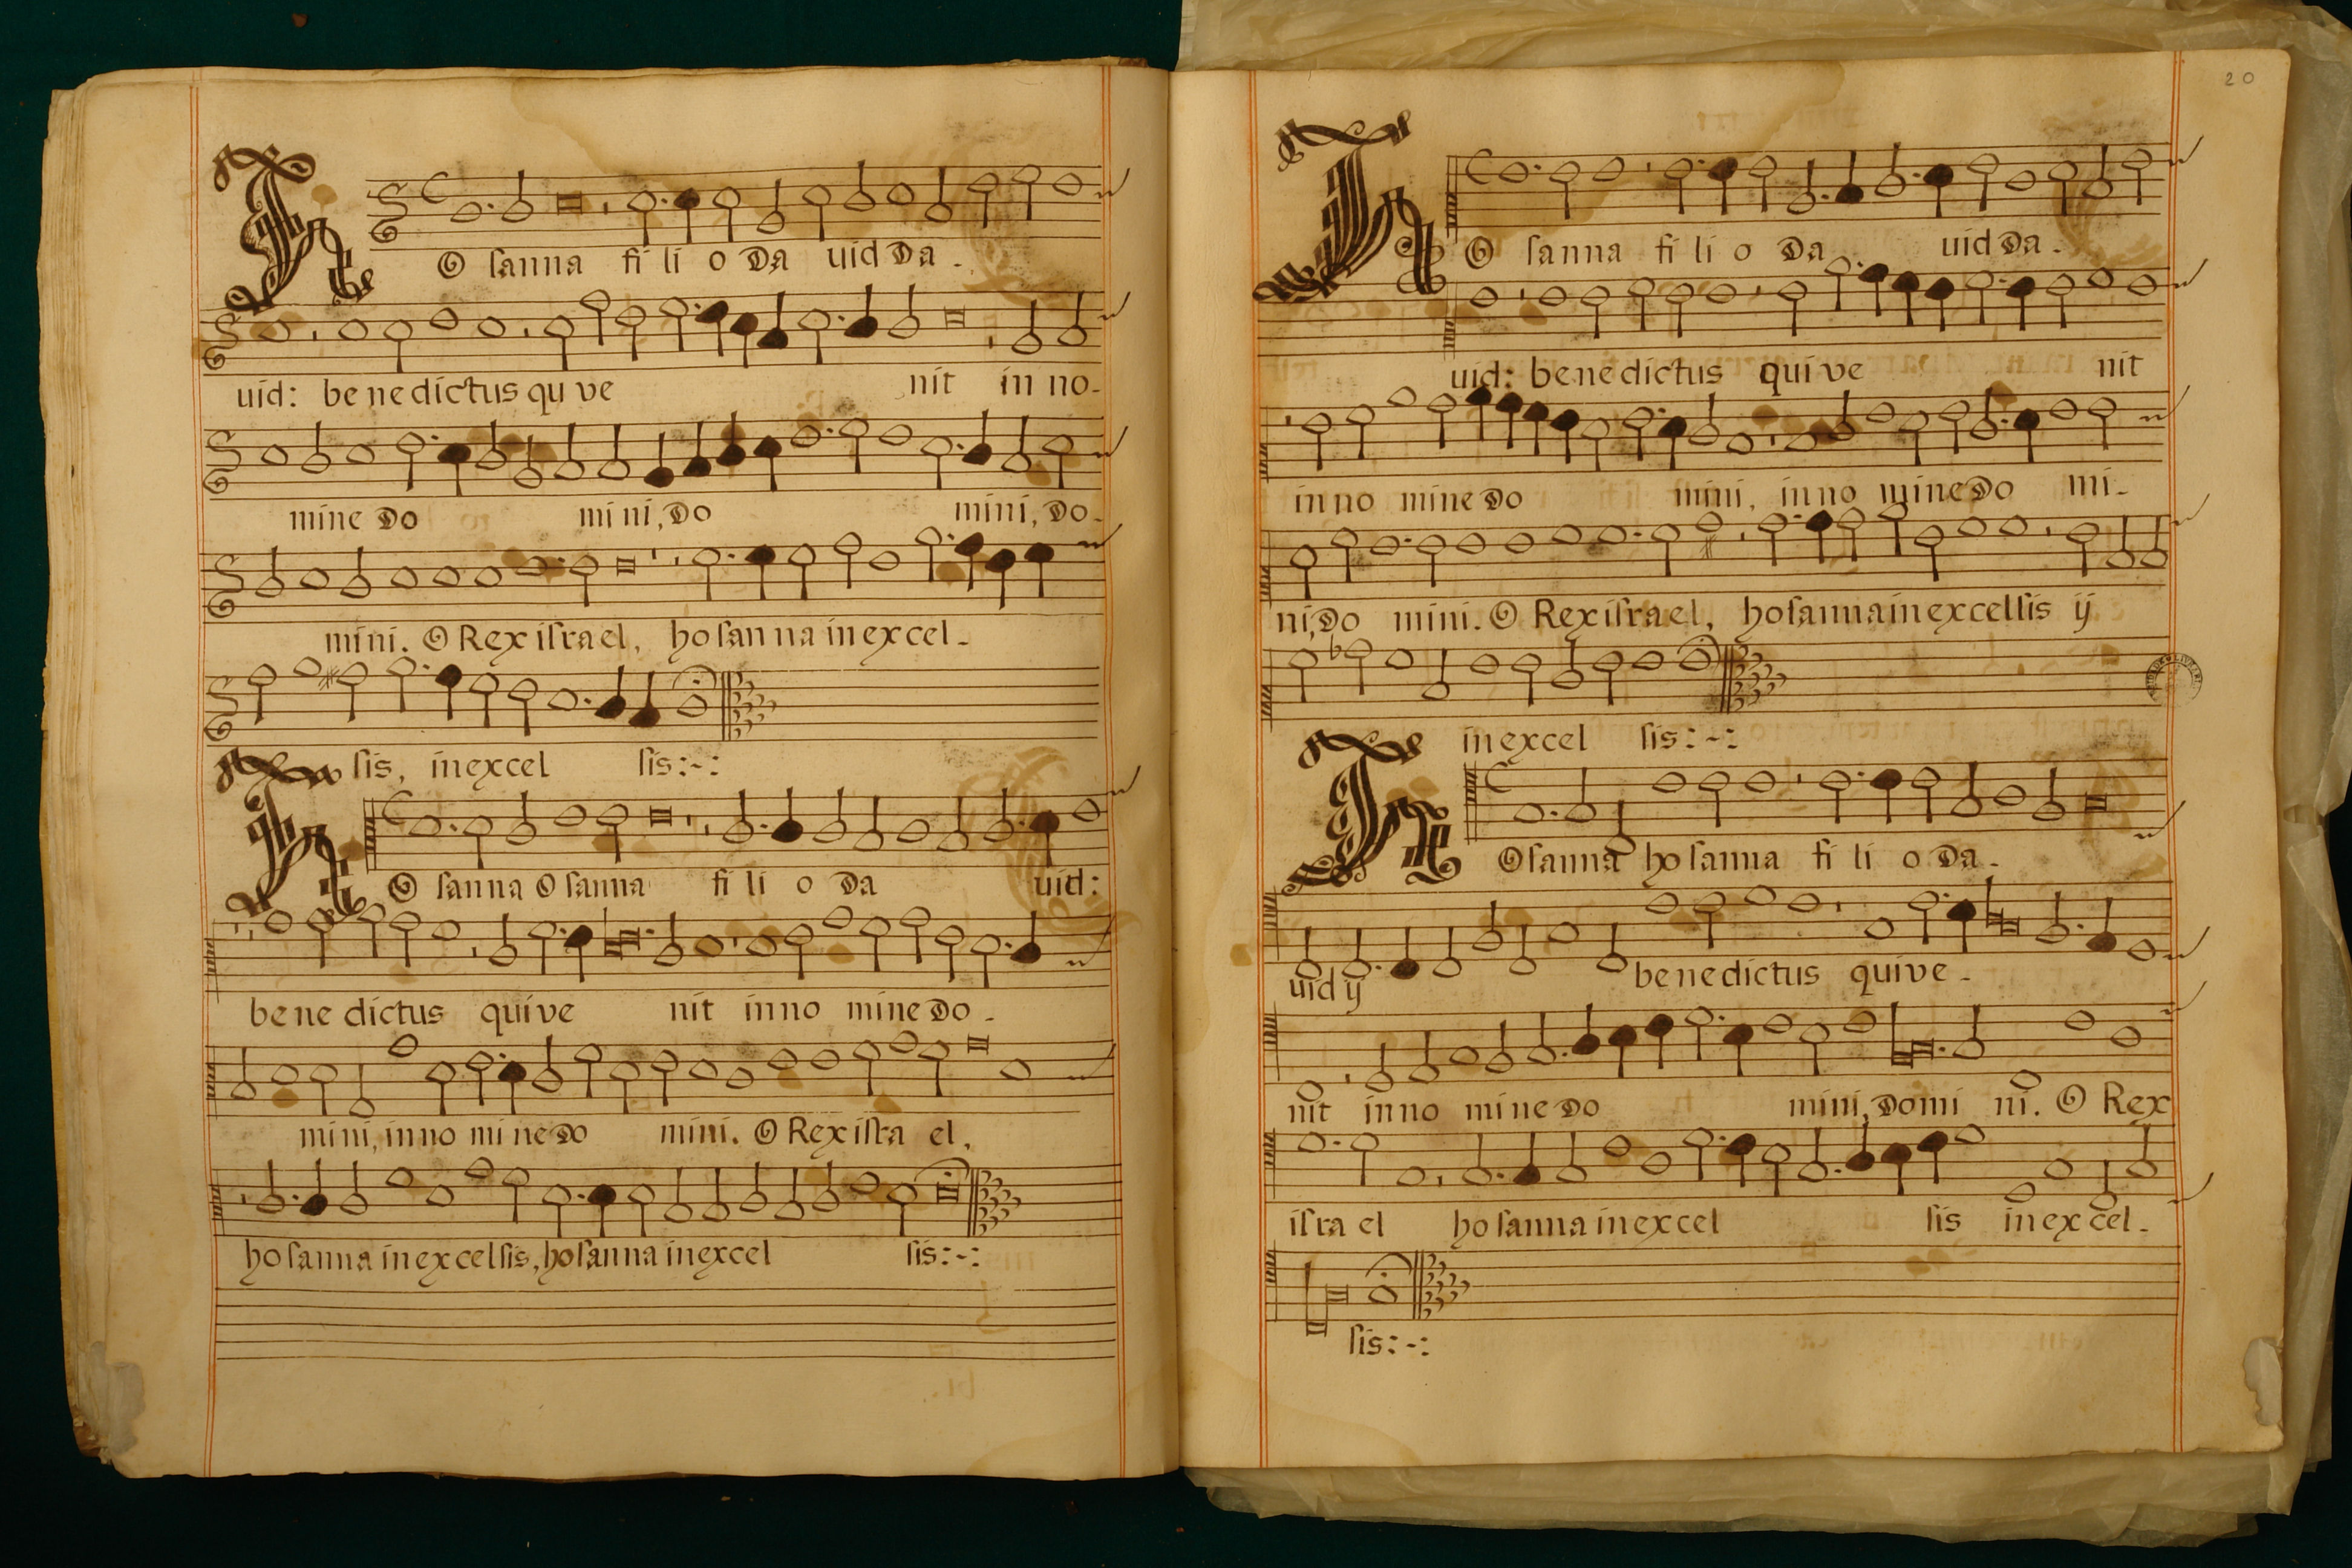 HO sanna fi li o Da uid Da-
uid: be ne dictus qu ve nit in no-
mine Do mi ni, Do mini, Do-
mini. O Rex iſrael, ho sanna in excel-
sis, in excel sis:-:
HO sanna O sanna fi li o Da uid:
be ne dictus qui ve nit in no mine Do-
mini, in no mi ne Do mini. O Rex iſra el,
ho sanna in excelsis, ho sanna in excel sis:-:
20
HO sanna fi li o Da uid Da-
uid: be ne dictus qui ve nit
in no mine Do mini, in no mine Do mi-
ni, Do mini. O Rex iſrael, ho sanna in excelsis ij
in excel sis:-:
HO sanna ho sanna fi li o Da-
uid ij be ne dictus qui ve-
nit in no mi ne Do mini, Domi ni. O Rex
iſra el ho sanna in excel sis in excel-
sis:-: